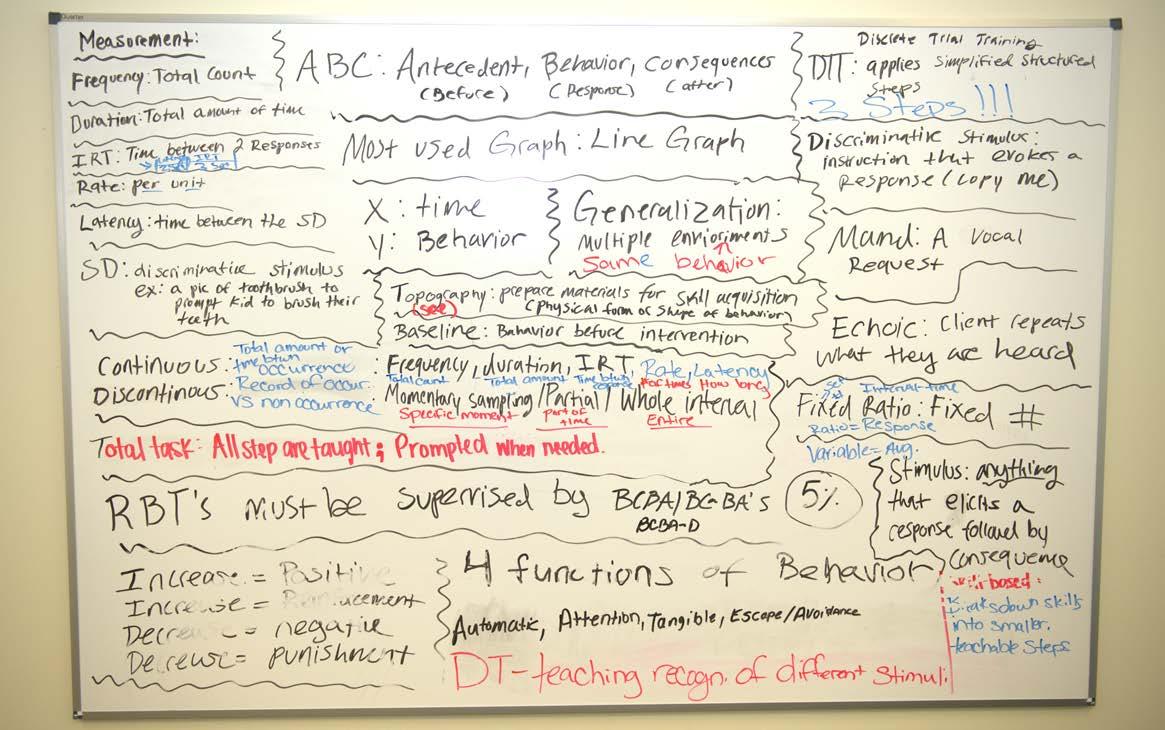 Quartet
Measurement:
Frequency: Total Count
Duration: Total amount of time
IRT: Time between 2 Responses
IRT
Rate: per unit
Latency: time between the SD
SD: discriminative stimulus
ex: a pic of toothbrush to
prompt kid to brush their
teeth
ABC: Antecedent, Behavior, consequences
(Before) (Response) (after)
Most used Graph: Line Graph
X: time
Y: Behavior
Generalization:
multiple envioriments
same behavior
Topography: prepare materials for skill acquisition
(see) (Physical form or shape of behavior)
Baseline: Bahavior before intervention
Discrete Trial Training
DTT: applies simplified structured
steps
3 Steps!!!
Discriminative Stimulus:
instruction that evokes a
Response (copy me)
Mand: A vocal
Request
Echoic: Client repeats
what they are heard
Continuous: Total amount or
time btwn
occurrence
: Frequency, duration, IRT, Rate, Latency
Total count Total amount Time btwn
response # of times How long
Discontinous: Record of occur.
VS non occurrence
: Momentary sampling/Partial/Whole interval
Specific moment Part of
time Entire
Total task: All step are taught; Prompled when needed.
Interval=time
Fixed Ratio: Fixed #
Ratio=Response
Variable=Avg.
RBT's must be supervised by BCBA/BCaBA's 5%
BCBA-D
Stimulus: anything
that elicits a
response followed by
consequence
Increase = Positive
Increase =
= negative
Decrease = punishment
4 functions of Behavior
Automatic, Attention, Tangible, Escape/Avoidance
DT-teaching recogn. of different Stimuli.
based:
Breaksdown skills
into smaller.
teachable steps